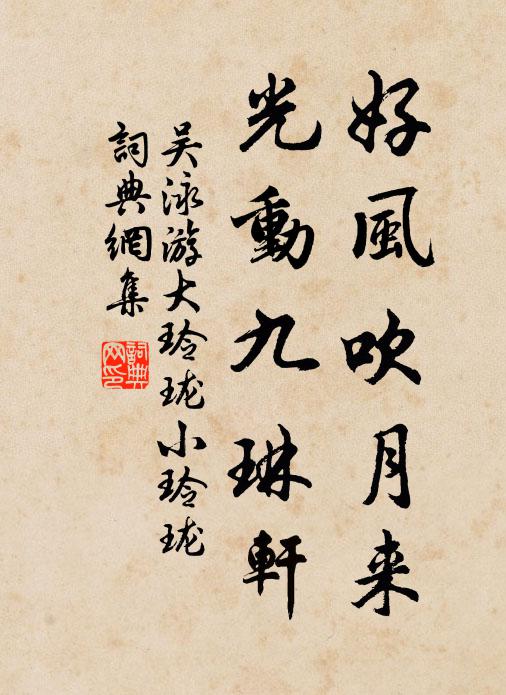 好風吹月来
光動九琳軒
吴泳游大玲珑小玲珑
詞典網集
詞典網印